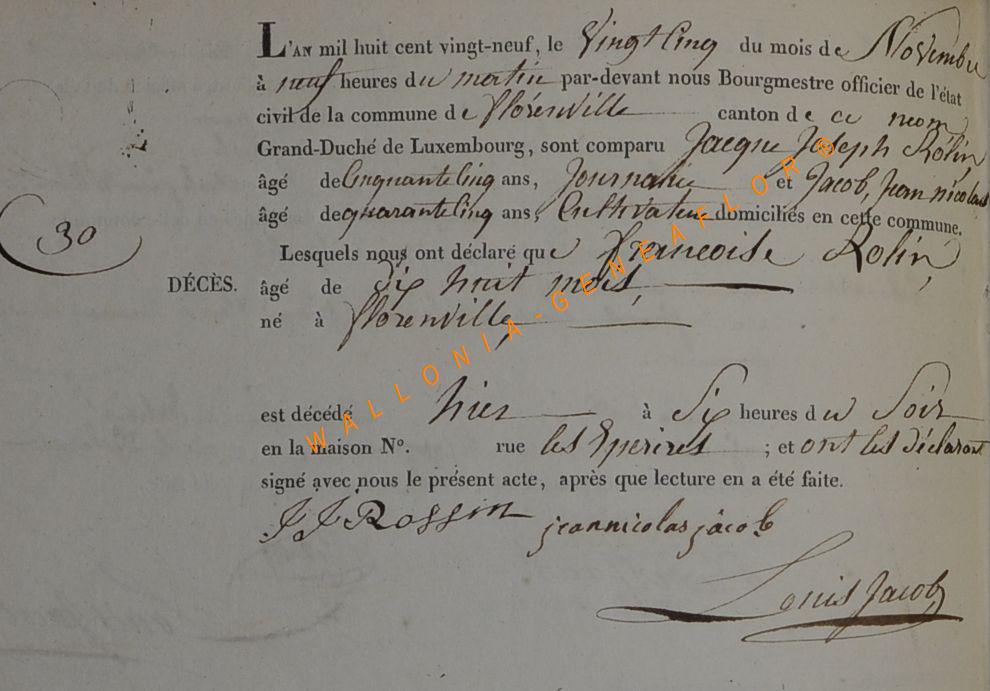 L'AN mil huit cent vingt-neuf, le Vingt Cinq du mois de Novembre
à neuf heures du matin par-devant nous Bourgmestre officier de l'état
civil de la commune de florenville canton de ce nom
Grand-Duché de Luxembourg, sont comparu Jacque Joseph Rolin
âgé de Cinquante Cinq ans, Journalie et Jacob, Jean nicolas
âgé de quarante Cinq ans, Cultivateur domiciliés en cette commune.
30
Lesquels nous ont déclaré que francoise Rolin,
DÉCÈS. âgé de dix huit mois,
né à florenville
est décédé hier à Six heures du Soir
en la maison N°. rue les Eperires ; et ont les déclarant
signé avec nous le présent acte, après que lecture en a été faite.
JJ Rossin jeannicolas jacob
Louis Jacob
WALLONIA-GENEAFLOR®